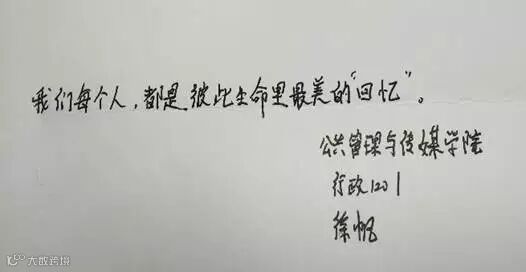 我们每个人，都是彼此生命里最美的“回忆”。
公共管理与传媒学院
行政1201
徐帆
大数跨境